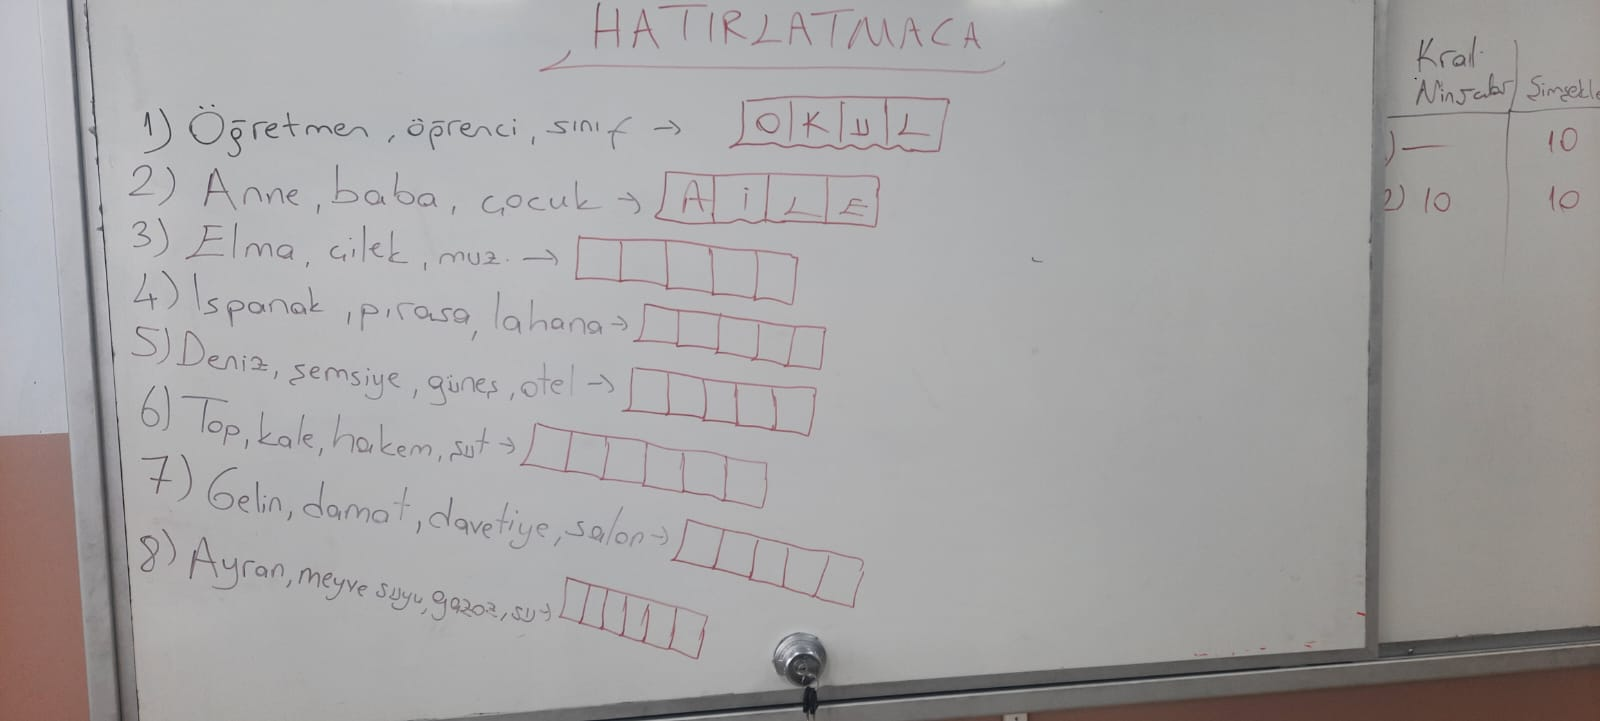 HATIRLATMACA
1) Öğretmen, öğrenci, sınıf → OKUL
2) Anne, baba, çocuk → AİLE
3) Elma, çilek, muz. →
4) Ispanak, pırasa, lahana →
5) Deniz, şemsiye, güneş, otel →
6) Top, kale, hakem, şut →
7) Gelin, damat, davetiye, salon →
8) Ayran, meyve suyu, gazoz, su →
Kral
Ninjalar Şimşekle
1) — 10
2) 10 10